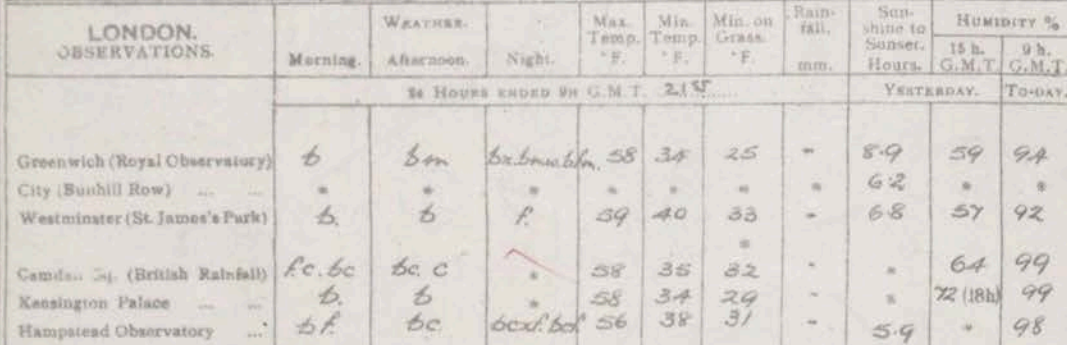 LONDON. OBSERVATIONS. WEATHER. Morning. Afternoon. Night. Max. Temp. °F. Min. Temp. °F. Min. on Grass. °F. Rain-fall. mm. Sun-shine to Sunset. Hours. HUMIDITY % 15 h. G.M.T. 9 h. G.M.T.
24 HOURS ENDED 9H G.M.T. 21st YESTERDAY. TO-DAY.
Greenwich (Royal Observatory) b bm 58 34 25 - 8.9 59 94
City (Bunhill Row) ... ... * * * * * * * 6.2 * *
Westminster (St. James's Park) b. b f. 59 40 33 - 6.8 57 92
*
Camden Sq. (British Rainfall) f.c. bc bc. c * 58 35 32 - * 64 99
Kensington Palace ... ... b. b * 58 34 29 - * 72 (18h) 99
Hampstead Observatory ... bf. bc 56 38 31 - 5.9 * 98